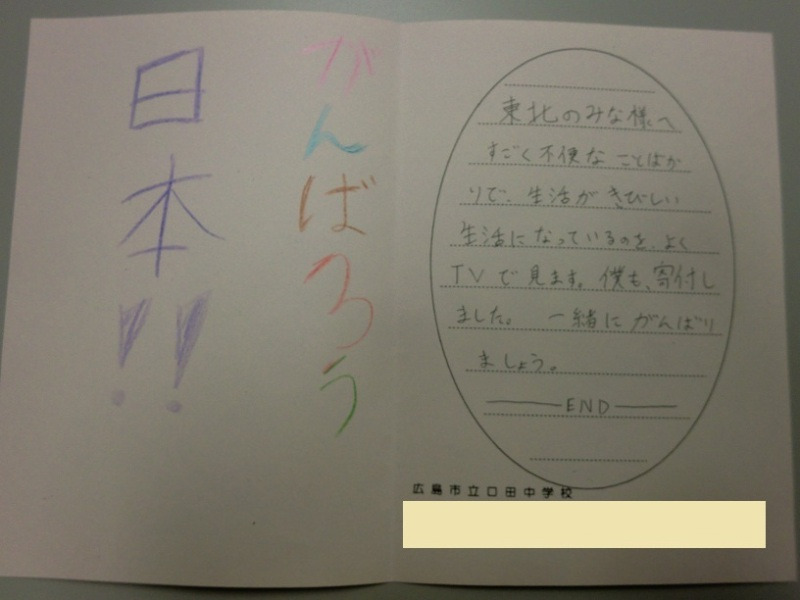 がんばろう
日本!!
東北のみな様へ
すごく不便なことばか
りで、生活がきびしい
生活になっているのを、よく
TVで見ます。僕も、寄付し
ました。 一緒にがんばり
ましょう。
END
広島市立口田中学校